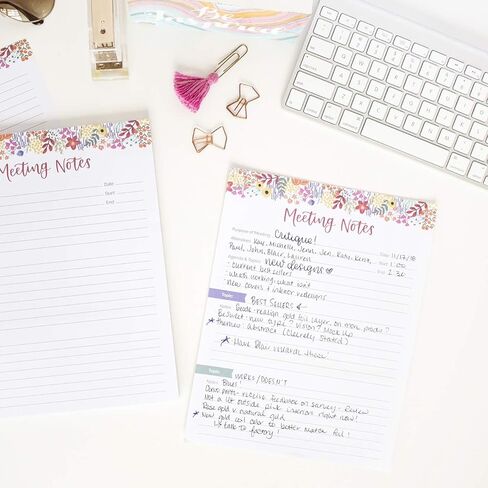 Meeting Notes
Date
Start
End
Meeting Notes
Purpose of Meeting: Critique!
Attendees: Kay, Michelle, Jenn, Jen, Kate, Kena,
Paul, John, Blair, Lauren
Date 11/17/18
Start 1:00
End 2:30
Agenda & Topics: new designs
· current best sellers
· what's working, what isn't
· new covers + interior redesigns
Topic: BEST SELLERS
Notes: Geode: realign gold foil layer, on more prods?
Besweet: new type? vision? Mock up
themes: abstract (Discretely Stated)
Have Blair research these!
Topic: WORKS/DOESN'T
Notes: Blues!
Convo perm - receive feedback on survey - Review
Not a lot outside pink interior right now!
Rose gold v. natural gold
New gold coil color to better match foil!
talk to factory!